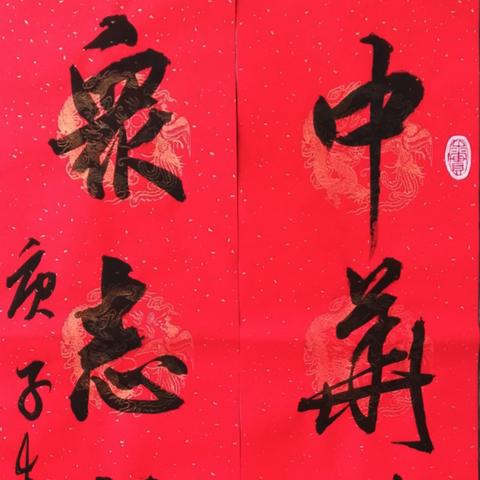 中華
衆志
庚子